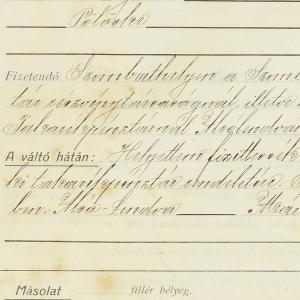 Pölöske
Fizetendő Szombathelyen a Szom
tár részvénytársaságnál, illetve
Takarékpénztárnál Alsólendván
A váltó hátán: Helyettem fizettessék
ki takarékpénztár rendeletére.
ben. Alsó-Lendva
Másolat fillér bélyeg.